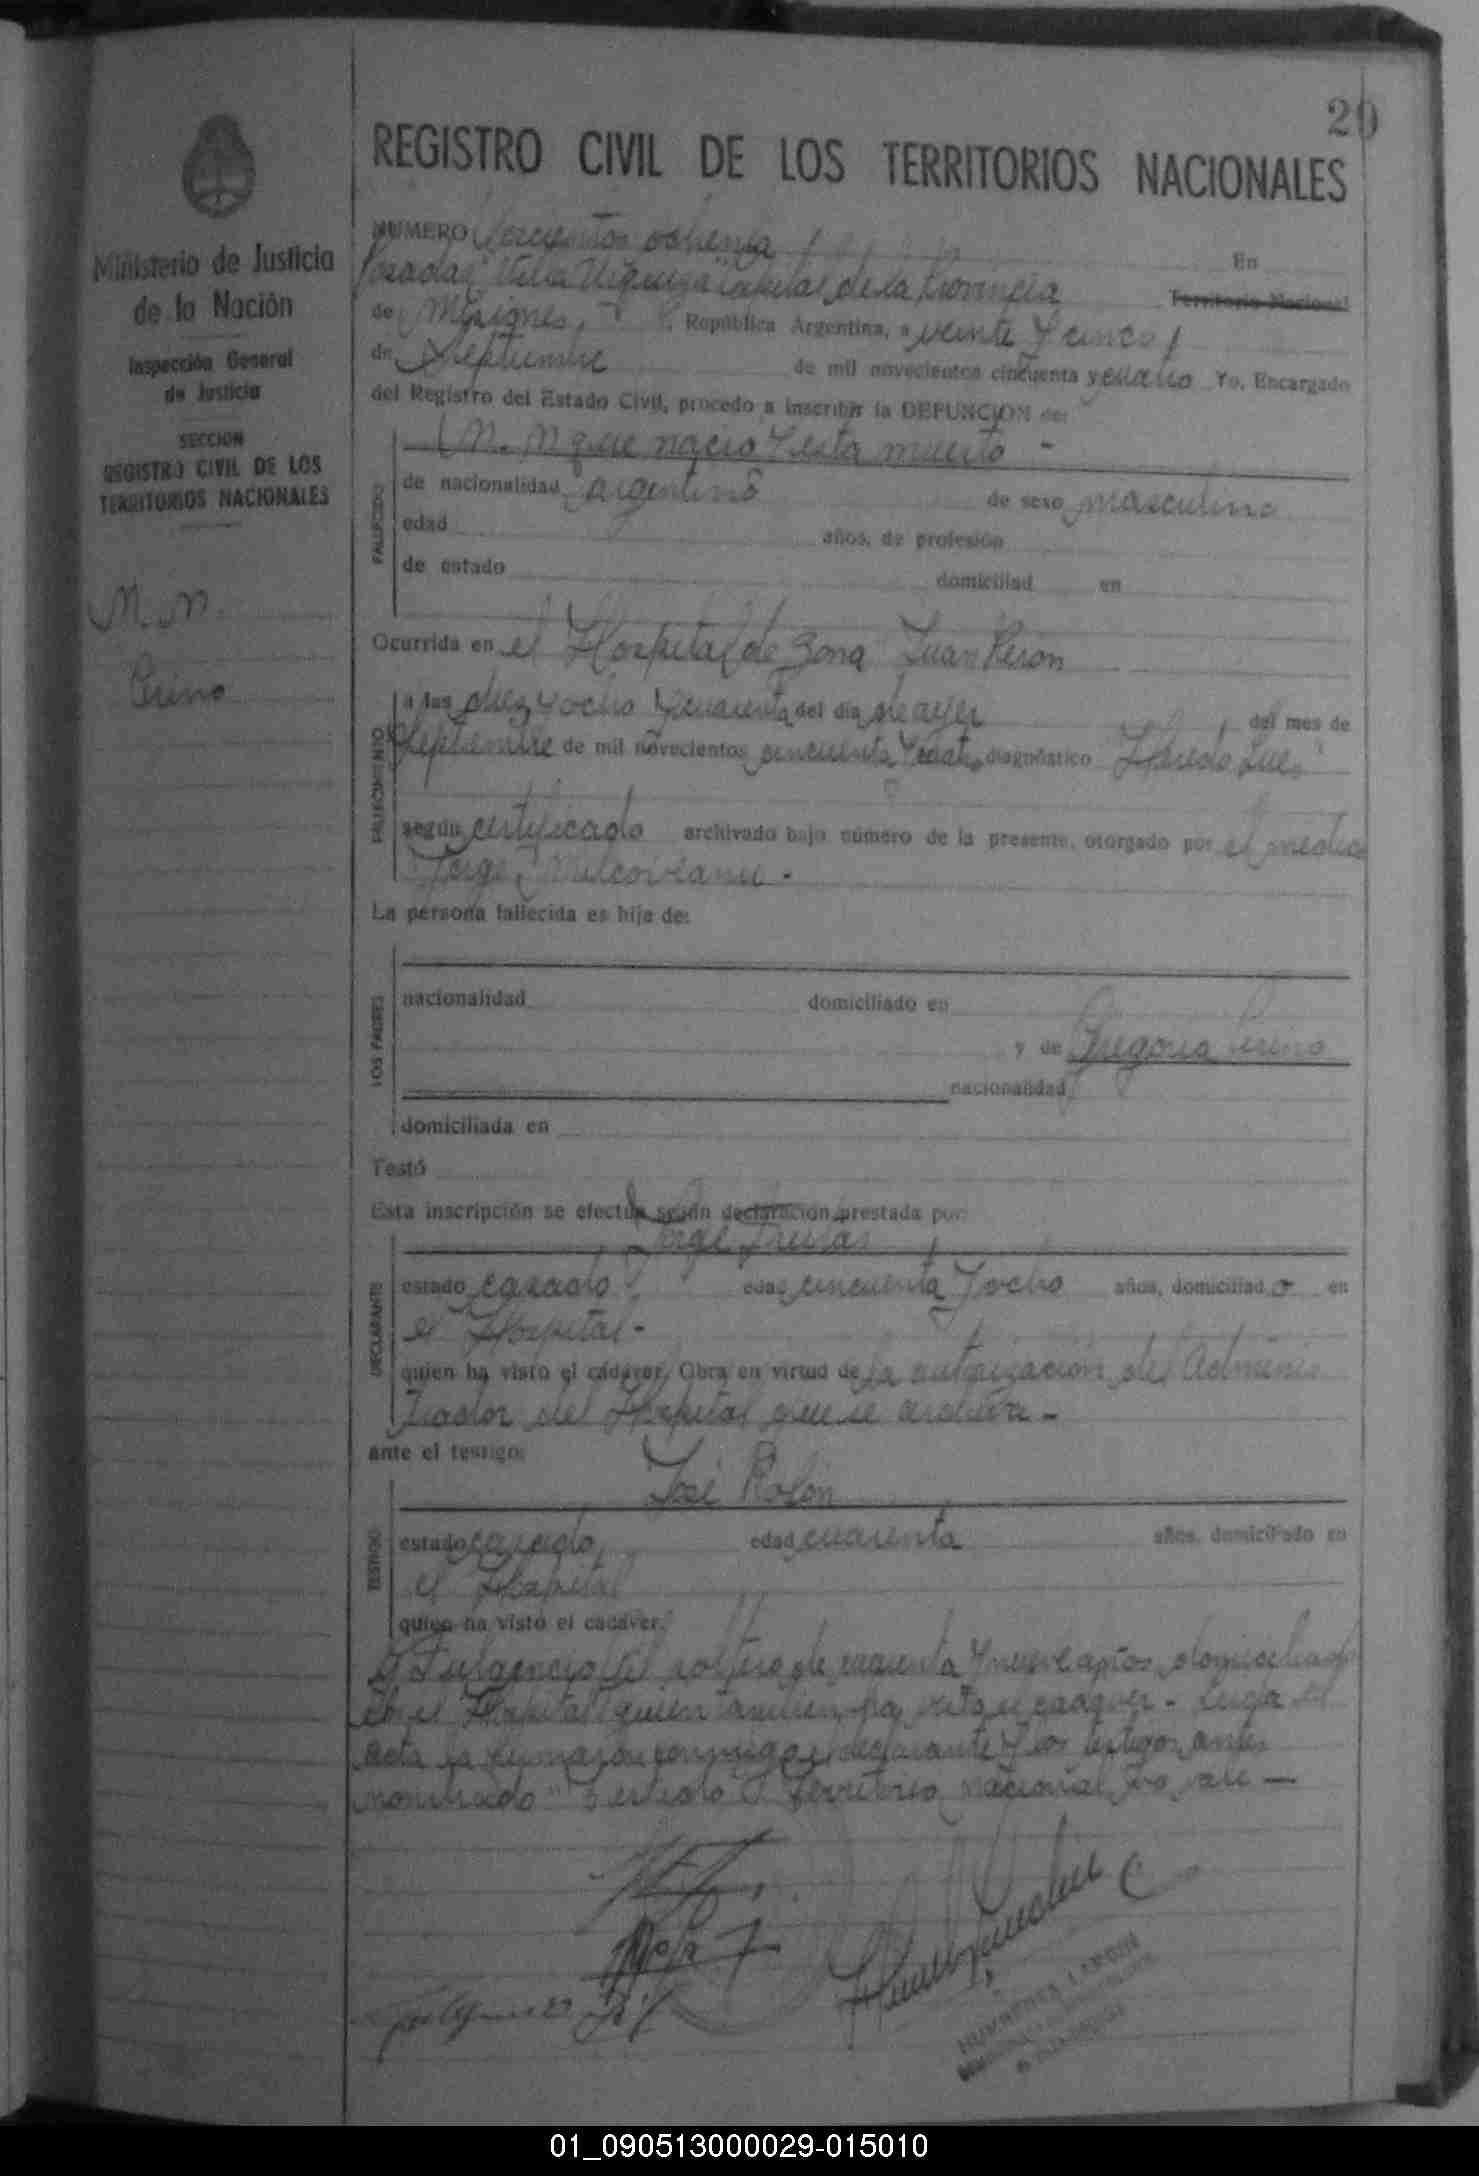 20
REGISTRO CIVIL DE LOS TERRITORIOS NACIONALES
Ministerio de Justicia
de la Nación
Inspección General
de Justicia
SECCION
REGISTRO CIVIL DE LOS
TERRITORIOS NACIONALES
N. N.
NUMERO ochenta En
Posadas "Villa Urquiza" capital de la Provincia Territorio Nacional
de Misiones, República Argentina, a veinte y cinco
de Septiembre de mil novecientos cincuenta y cuatro Yo, Encargado
del Registro del Estado Civil, procedo a inscribir la DEFUNCION de:
N. N que nacio y esta muerto -
FALLECIDO
de nacionalidad argentino de sexo masculino
edad años, de profesión
de estado domiciliad en
Ocurrida en el Hospital de Zona Juan Perón
FALLECIMIENTO
a las diez y ocho y cuarenta del día de ayer del mes de
Septiembre de mil novecientos cincuenta y cuatro diagnóstico
según certificado archivado bajo número de la presente, otorgado por el medico
Jorge
La persona fallecida es hija de:
LOS PADRES
nacionalidad domiciliado en
y de Gregoria
nacionalidad
domiciliada en
Testó
Esta inscripción se efectúa según declaración prestada por:
Jorge
DECLARANTE
estado casado edad cincuenta y ocho años, domiciliado en
el Hospital -
quien ha visto el cadáver. Obra en virtud de la autorización del Adminis
trador del Hospital que se archiva -
ante el testigo:
José Rolón
TESTIGO
estado casado, edad cuarenta años, domiciliado en
el Hospital
quien ha visto el cadáver.
y Fulgencio Gil soltero de cuarenta y nueve años domiciliado
en el Hospital quien tambien ha visto el cadaver - Leida el
acta la firmaron conmigo el declarante y los testigos antes
nombrado " Testado " Territorio Nacional no vale —
01_090513000029-015010